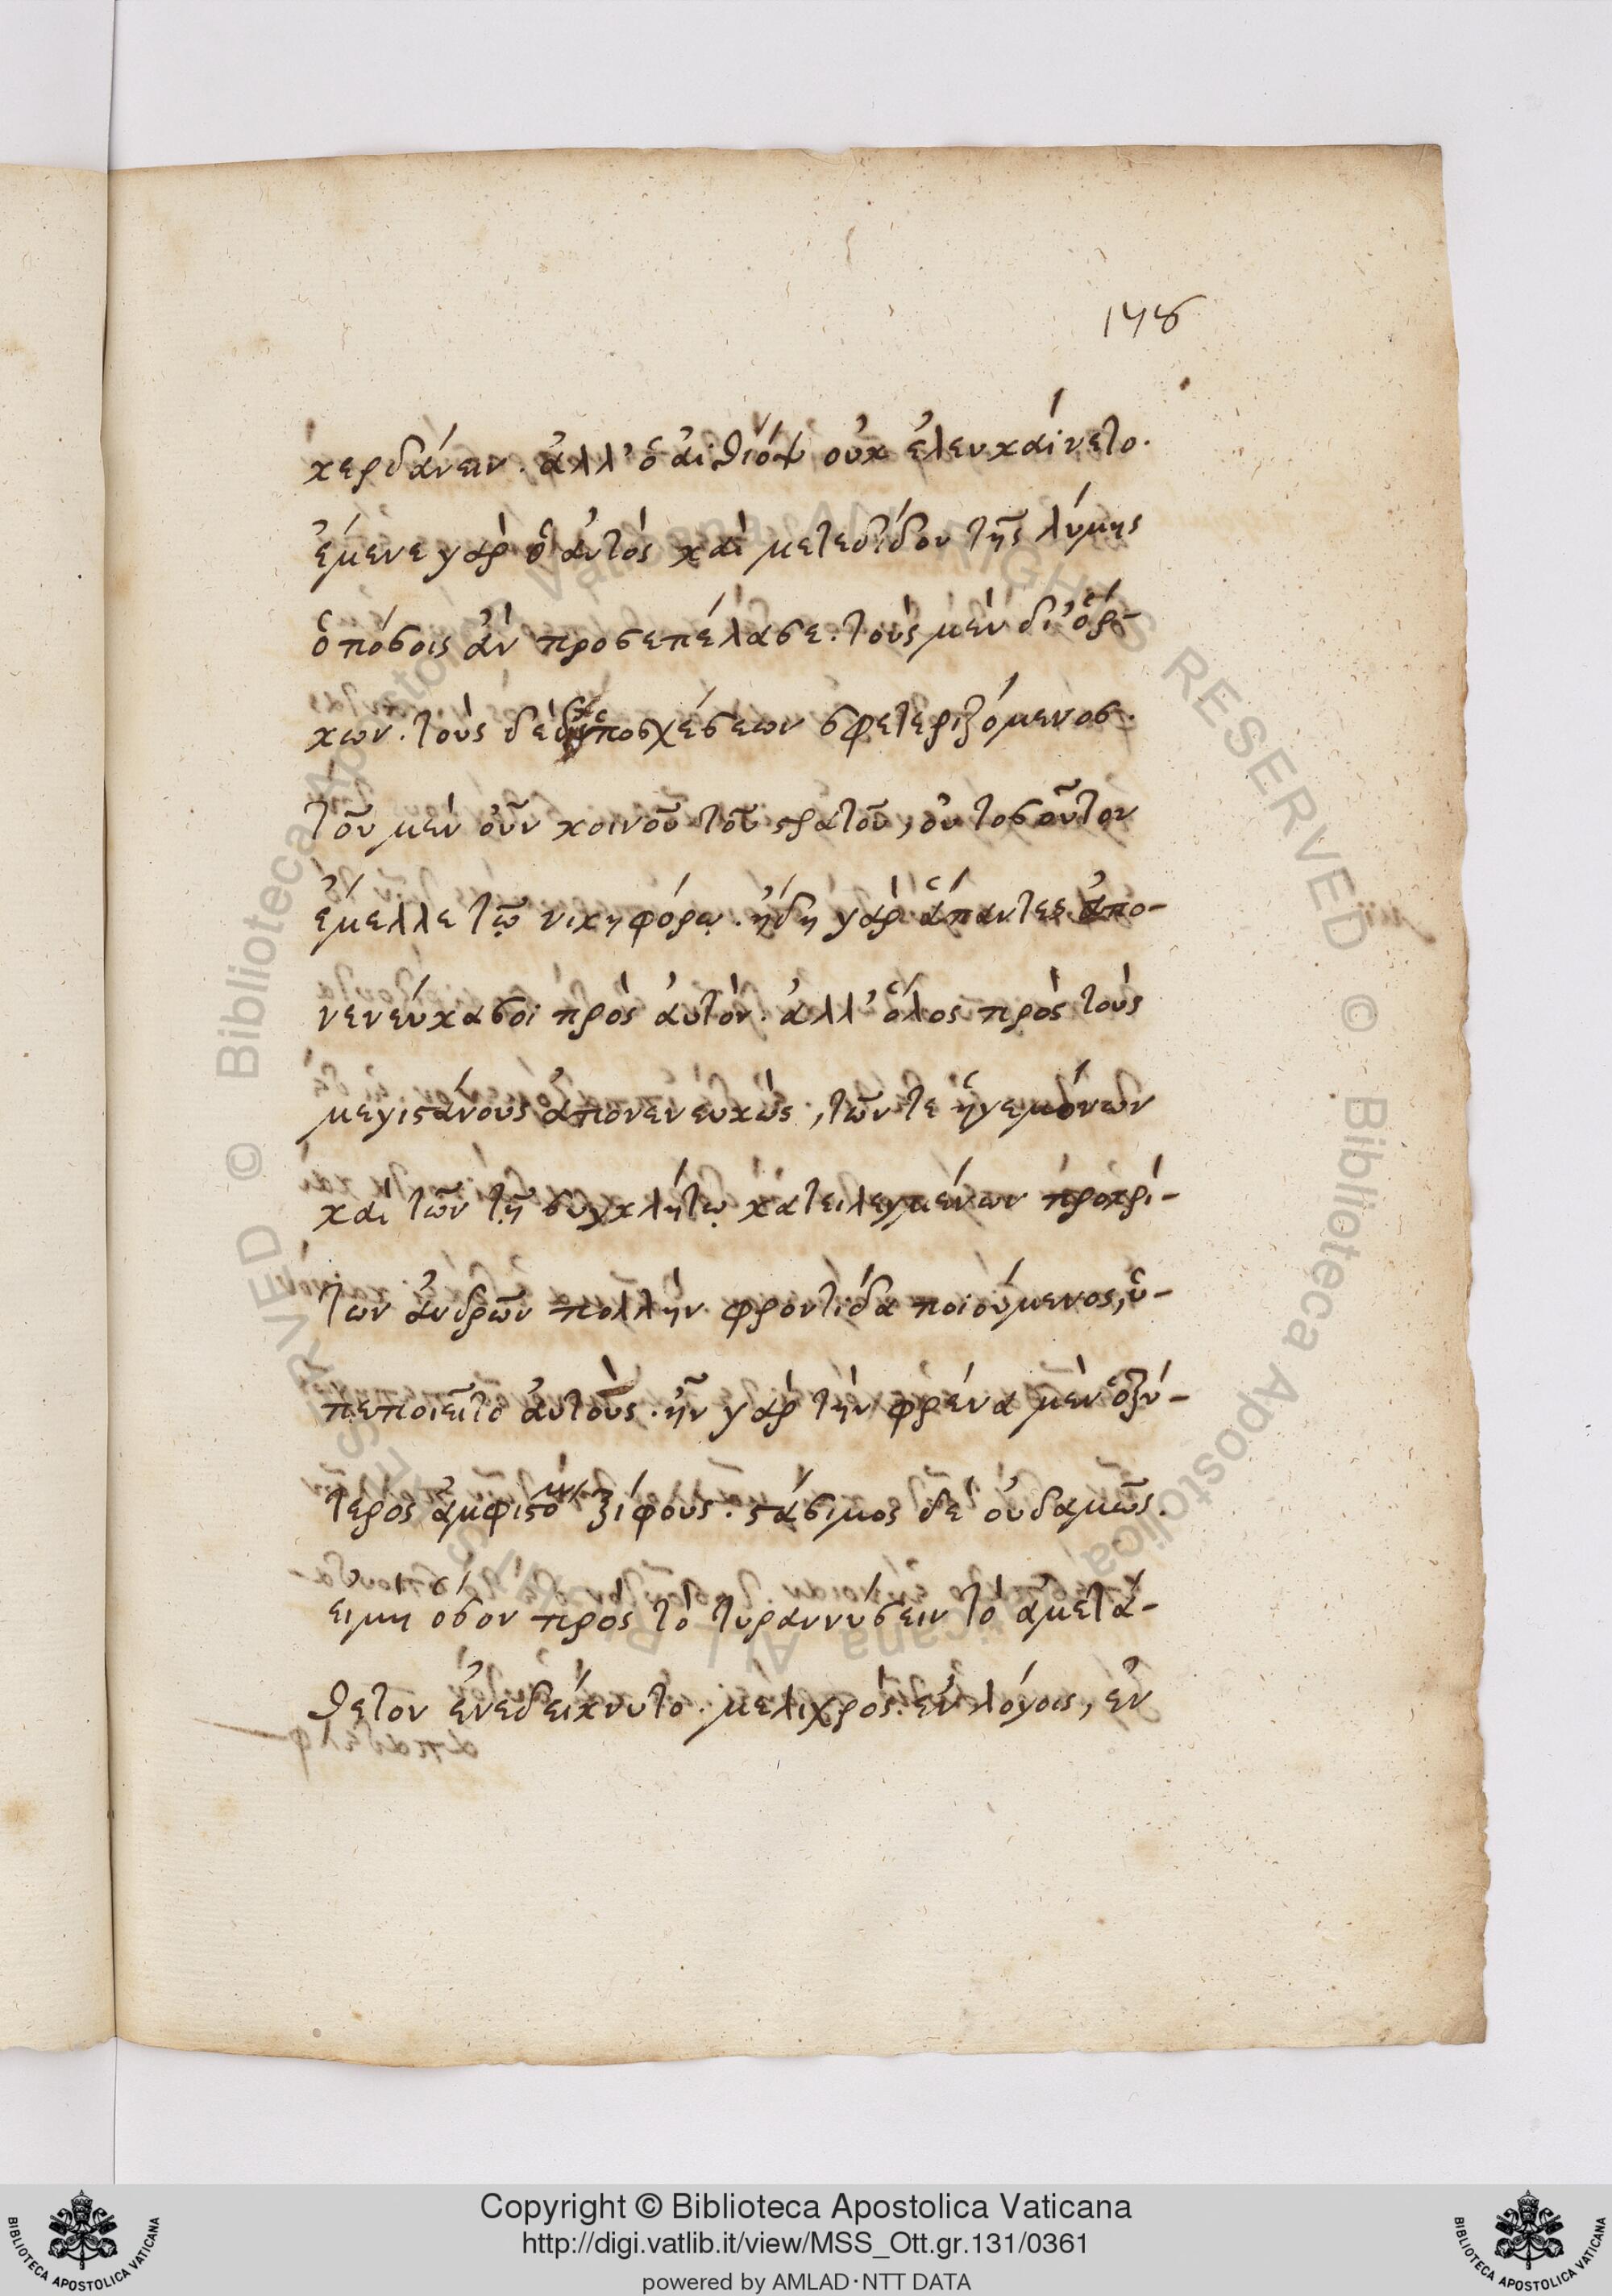 178
κερδάνειν. ἀλλ' ὁ ἀιθίοψ οὐκ ἐλευκαίνετο.
ἔμενε γὰρ ὁ ἀυτὸς καὶ μετεδίδου τῆς λύμης
ὁπόσοις ἂν προσεπέλασε. τοὺς μὲν δι' ὅρ-
κων. τοὺς δὲ δι' ὑποσχέσεων σφετεριζόμενος.
τοῦ μὲν οὖν κοινοῦ τοῦ στρατοῦ, ὀυ τοσοῦτον
ἔμελλε τῷ νικηφόρῳ. ἤδη γὰρ ἅπαντες ἀπο-
νενεύκασοι πρὸς ἀυτὸν. ἀλλ' ὅλος πρὸς τοὺς
μεγιστάνους ἀπονενευκὼς, τῶν τε ἡγεμόνων
καὶ τῶν τῇ συγκλήτῳ κατειλεγμένων προκρί-
των ἀνδρῶν πολλὴν φροντίδα ποιούμενος, ὑ-
πεποιεῖτο ἀυτοὺς. ἦν γὰρ τὴν φρένα μὲν ὀξύ-
τερος ἀμφιστόμου ξίφους. στάσιμος δὲ ὀυδαμῶς.
ειμὴ ὅσον πρὸς τὸ τυραννήσειν τὸ ἀμετά-
θετον ἐνεδείκνυτο. μελιχρὸς ἐν λόγοις, ἐν
Copyright © Biblioteca Apostolica Vaticana
http://digi.vatlib.it/view/MSS_Ott.gr.131/0361
powered by AMLAD·NTT DATA